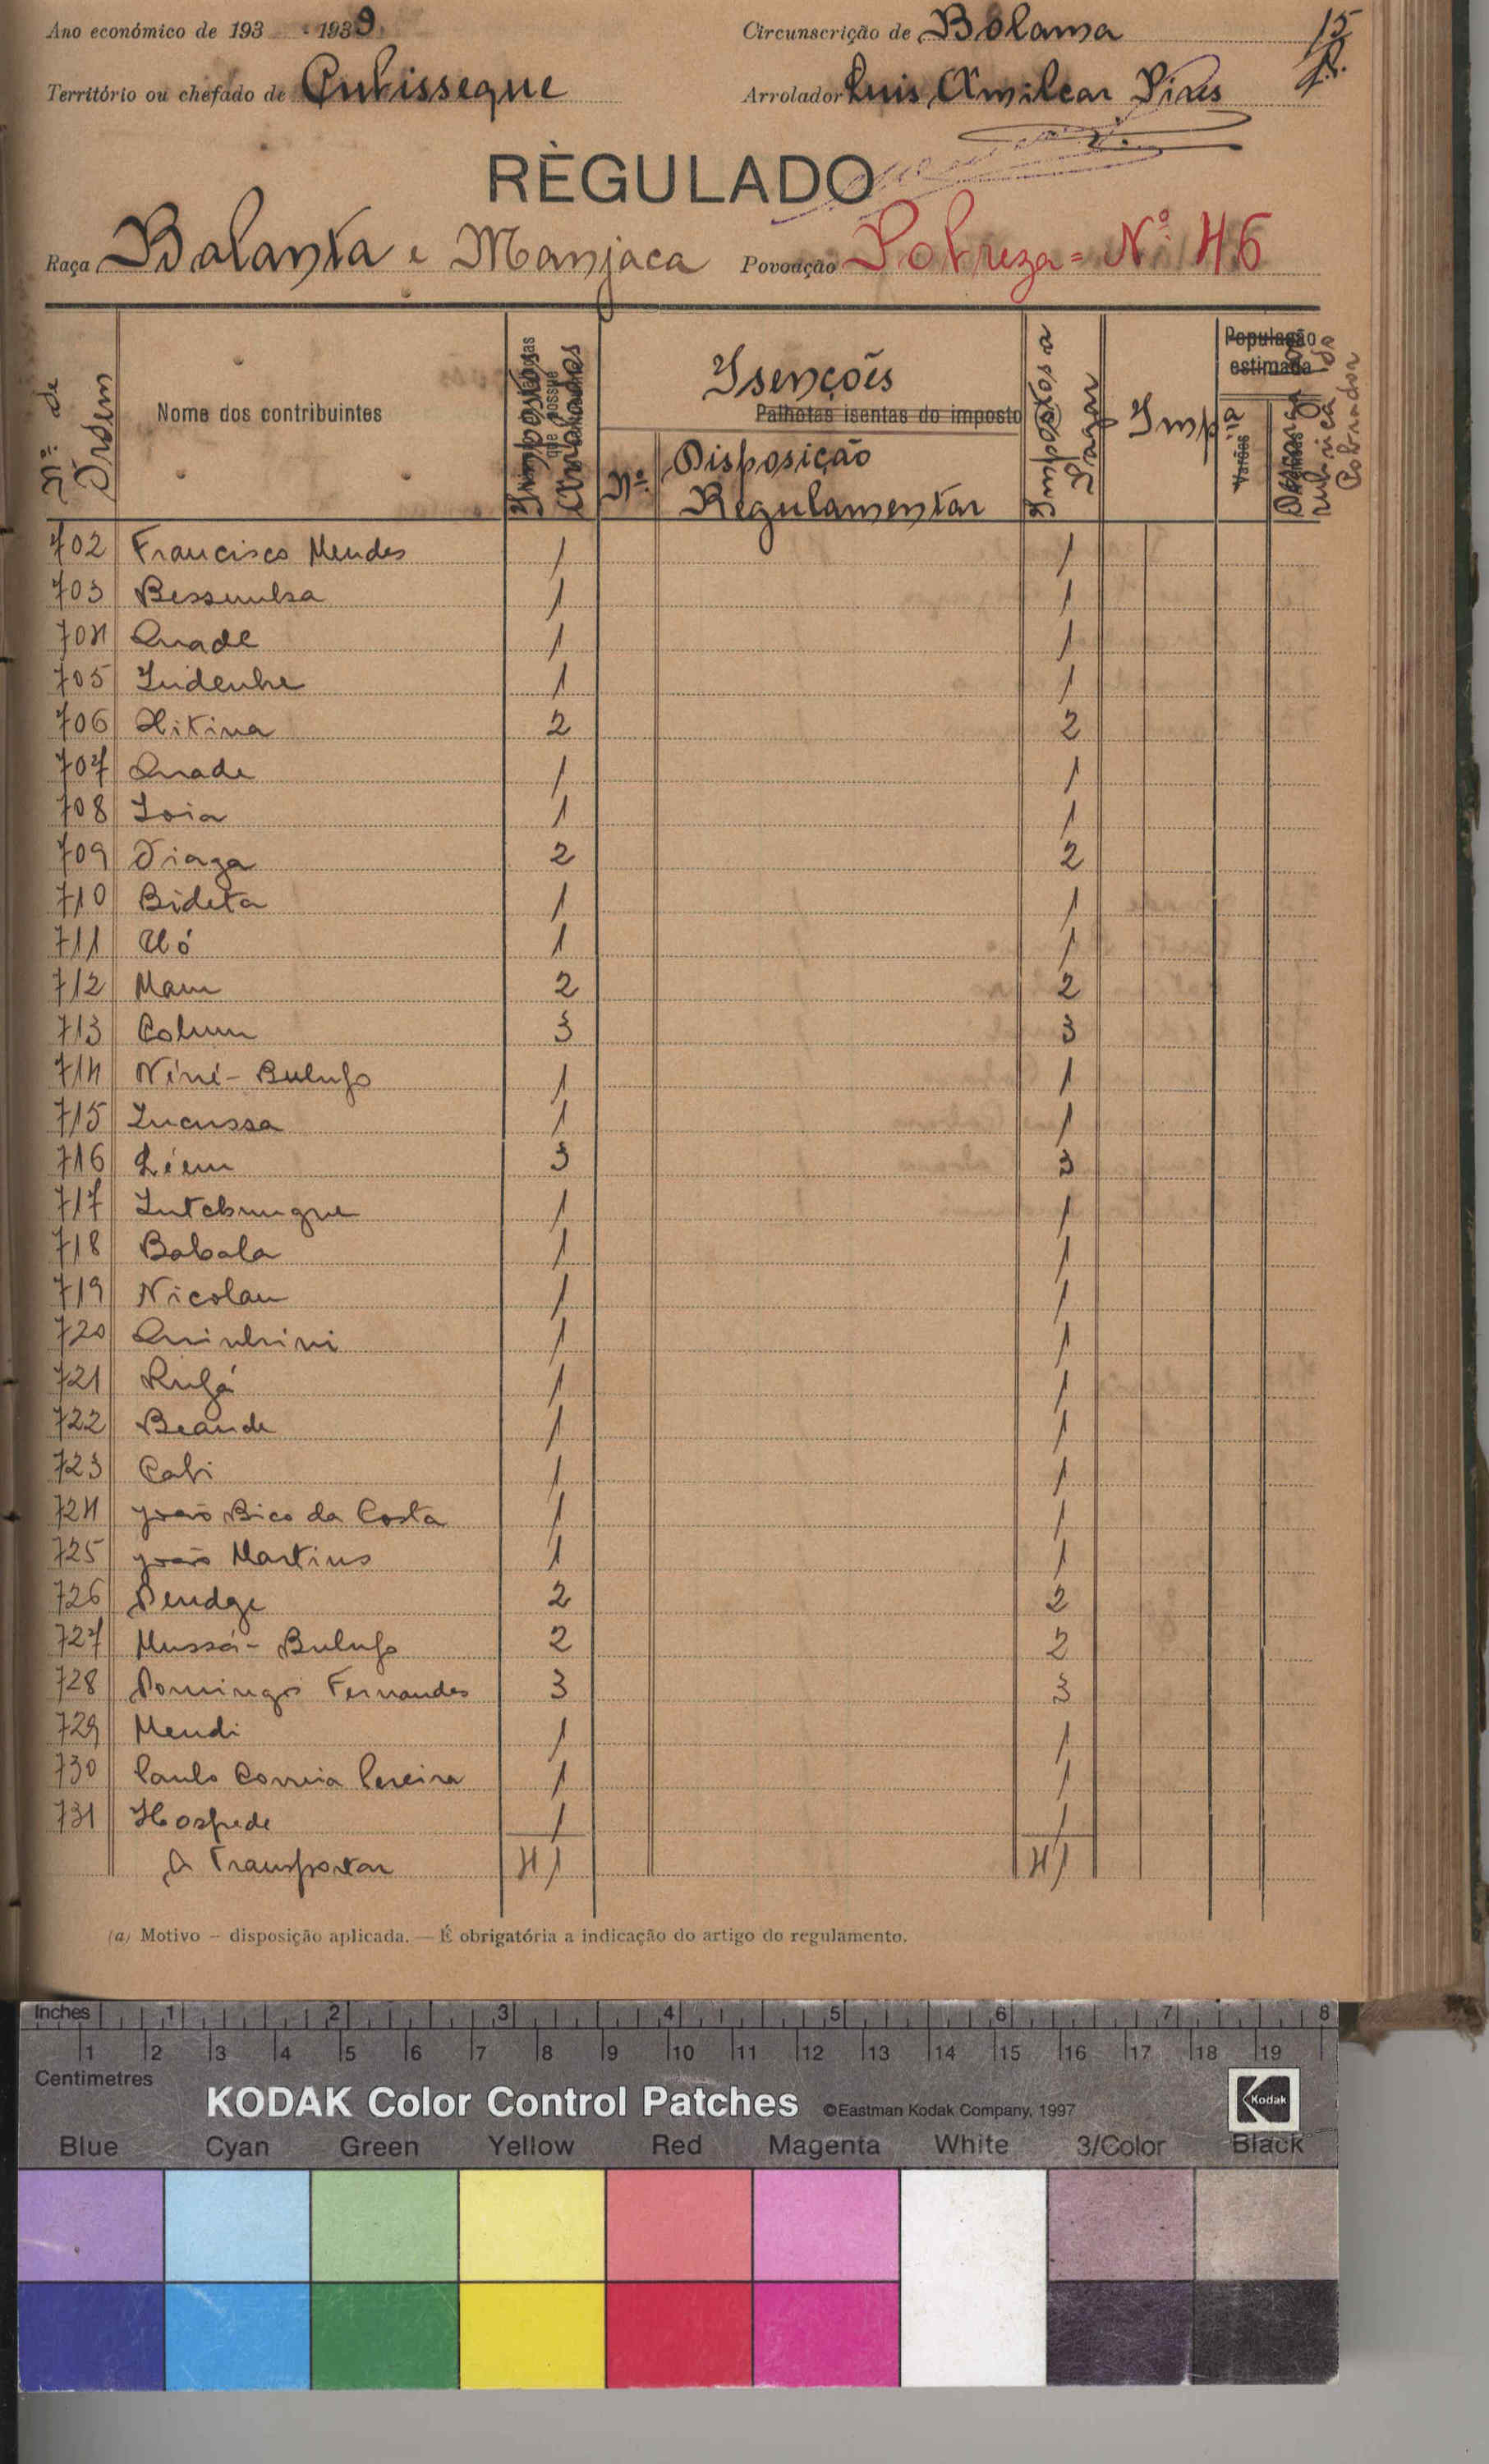 Ano económico de 193 -1939
Circunscrição de Bolama
15
Território ou chefado de Cubisseque
Arrolador Luis Amilcar Pires
RÈGULADO
Raça Balanta e Manjaca Povoação Pobreza = Nº 46
Nº de Ordem
Nome dos contribuintes
Impostos Arrolados
Isenções
Palhotas isentas do imposto
Nº Disposição Regulamentar
Impostos a Pagar
Imp
População estimada
Varões
rubrica do Cobrador
702 Francisco Mendes 1 1
703 1 1
704 Quade 1 1
705 Indenhe 1 1
706 Hitina 2 2
707 Quade 1 1
708 Ioia 1 1
709 Tiaga 2 2
710 Bideta 1 1
711 Uó 1 1
712 Mam 2 2
713 Colum 3 3
714 Nìní - Bulufo 1 1
715 Incussa 1 1
716 3 3
717 1 1
718 Babala 1 1
719 Nicolau 1 1
720 Quinhini 1 1
721 Rufá 1 1
722 Beande 1 1
723 Cabi 1 1
724 João Bico da Costa 1 1
725 João Martins 1 1
726 Dendge 2 2
727 Mussá - Bulufo 2 2
728 Domingos Fernandes 3 3
729 Mendi 1 1
730 Paulo Correia Pereira 1 1
731 Hospede 1 1
A Transportar 41 41
(a) Motivo – disposição aplicada. — É obrigatória a indicação do artigo do regulamento.
Inches 1 2 3 4 5 6 7 8
1 2 3 4 5 6 7 8 9 10 11 12 13 14 15 16 17 18 19
Centimetres
KODAK Color Control Patches ©Eastman Kodak Company, 1997 Kodak
Blue Cyan Green Yellow Red Magenta White 3/Color Black